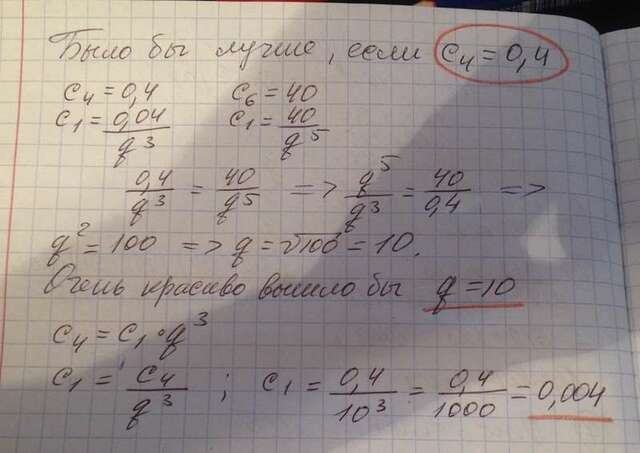 Было бы лучше, если c₄ = 0,4
c₄ = 0,4 c₆ = 40
c₁ = 0,04/q³ c₁ = 40/q⁵
0,4/q³ = 40/q⁵ => q⁵/q³ = 40/0,4 =>
q² = 100 => q = √100 = 10.
Очень красиво вышло бы q = 10
c₄ = c₁ · q³
c₁ = c₄/q³ ; c₁ = 0,4/10³ = 0,4/1000 = 0,004